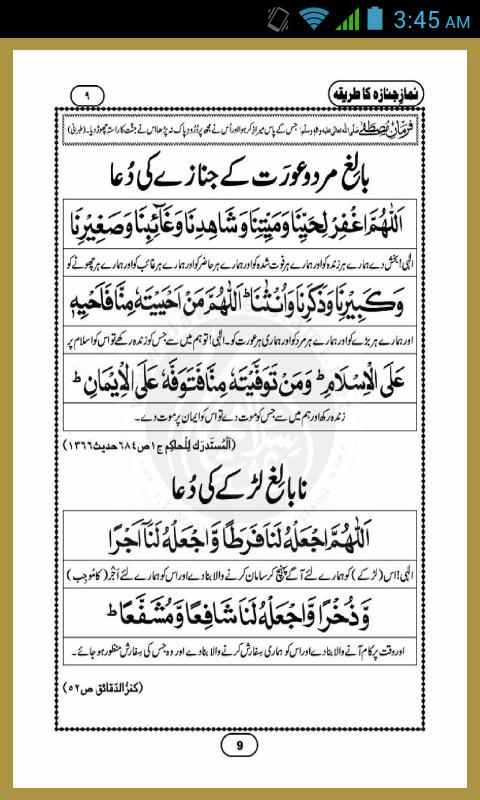 3:45 AM
نمازِ جنازہ کا طریقہ
۹
فرمانِ مصطفٰے صلی اللہ تعالٰی علیہ والہ وسلم: جس کے پاس میرا ذکر ہوا اور اُس نے مجھ پر دُرُودِ پاک نہ پڑھا اس نے جنّت کا راستہ چھوڑ دیا۔ (طبرانی)
بالِغ مرد و عورَت کے جنازے کی دُعا
اَللّٰهُمَّ اغْفِرْ لِحَيِّنَا وَمَيِّتِنَا وَشَاهِدِنَا وَغَآئِبِنَا وَصَغِيْرِنَا
الٰہی! بخش دے ہمارے ہر زندہ کو اور ہمارے ہر فوت شدہ کو اور ہمارے ہر حاضر کو اور ہمارے ہر غائب کو اور ہمارے ہر چھوٹے کو
وَكَبِيْرِنَا وَذَكَرِنَا وَاُنْثٰنَا ؕ اَللّٰهُمَّ مَنْ اَحْيَيْتَهٗ مِنَّا فَاَحْيِهٖ
اور ہمارے ہر بڑے کو اور ہمارے ہر مرد کو اور ہماری ہر عورت کو۔ الٰہی! تو ہم میں سے جس کو زندہ رکھے تو اس کو اسلام پر
عَلَى الْاِسْلَامِ ؕ وَمَنْ تَوَفَّيْتَهٗ مِنَّا فَتَوَفَّهٗ عَلَى الْاِيْمَانِ ؕ
زندہ رکھ اور ہم میں سے جس کو موت دے تو اس کو ایمان پر موت دے۔
(اَلْمُستَدرَك لِلْحاكِم ج۱ ص٦٨٤ حديث١٣٦٦)
نابالِغ لڑکے کی دُعا
اَللّٰهُمَّ اجْعَلْهُ لَنَا فَرَطًا وَّاجْعَلْهُ لَنَآ اَجْرًا
الٰہی! اس (لڑکے) کو ہمارے لئے آگے پہنچ کر سامان کرنے والا بنا دے اور اس کو ہمارے لئے اَجْر (کا مُوجِب)
وَّذُخْرًا وَّاجْعَلْهُ لَنَا شَافِعًا وَّمُشَفَّعًا ؕ
اور وقت پر کام آنے والا بنا دے اور اس کو ہماری سِفارش کرنے والا بنا دے اور وہ جس کی سِفارش منظور ہو جائے۔
(كنزُ الدّقائق ص٥٢)
9